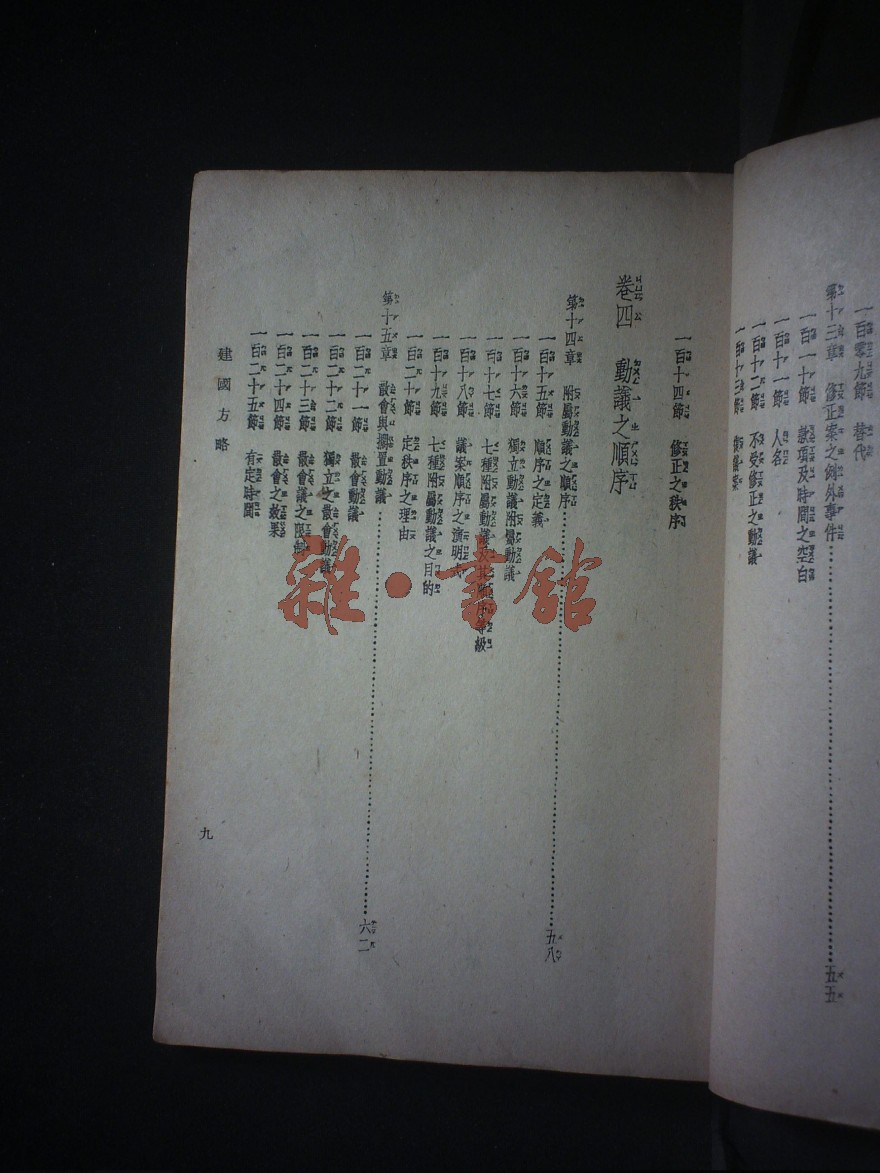 一百零九節　替代
第十三章　修正案之例外事件……五五
一百一十節　款項及時間之空白
一百十一節　人名
一百十二節　不受修正之動議
一百十三節
一百十四節　修正之秩序
卷四　動議之順序
第十四章　附屬動議之順序……五八
一百十五節　順序之定義
一百十六節　獨立動議附屬動議
一百十七節　七種附屬動議及其順序等級
一百十八節　議案順序之演明式
一百十九節　七種附屬動議之目的
一百二十節　定秩序之理由
第十五章　散會與擱置動議……六二
一百二十一節　散會動議
一百二十二節　獨立之散會動議
一百二十三節　散會議之限制
一百二十四節　散會之效果
一百二十五節　有定時間
建國方略
九
雜·書館